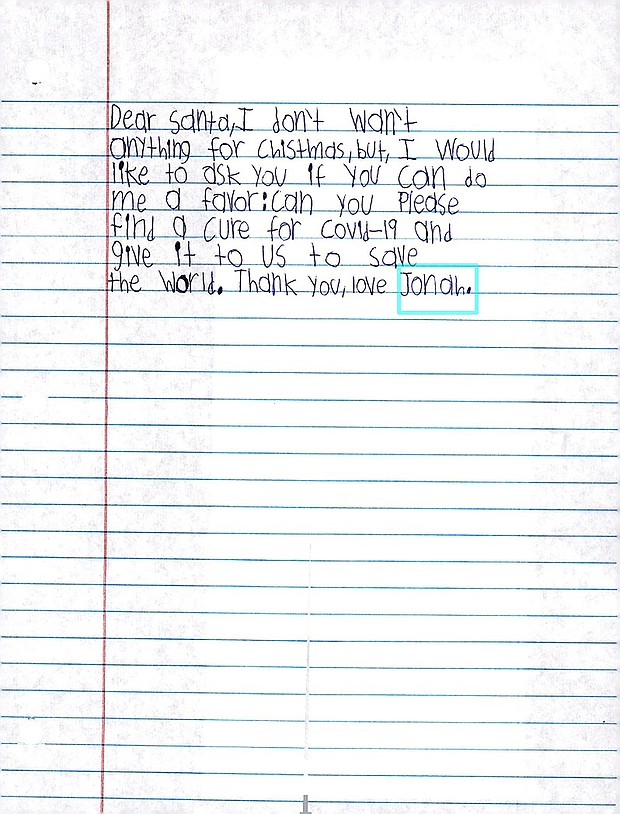 Dear santa, I don't wan't
anything for Chistmas, but, I would
like to ask you if you can do
me a favor: can you please
find a cure for covid-19 and
give it to us to save
the World. Thank you, love Jonah.